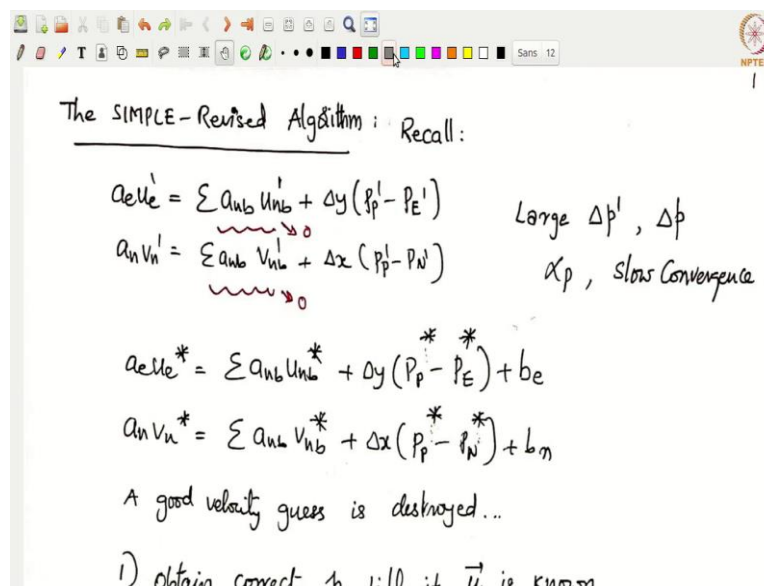 Sans 12
NPTE
1
The SIMPLE-Revised Algorithm : Recall :
aₑuₑ' = Σ aₙb uₙb' + Δy (Pp' - PE')
aₙvₙ' = Σ aₙb vₙb' + Δx (Pp' - PN')
→ 0
→ 0
Large Δp' , Δp
αp , Slow Convergence
aₑuₑ* = Σ aₙb uₙb* + Δy (Pp* - PE*) + bₑ
aₙvₙ* = Σ aₙb vₙb* + Δx (Pp* - PN*) + bₙ
A good velocity guess is destroyed...
1) obtain correct p till if u⃗ is known